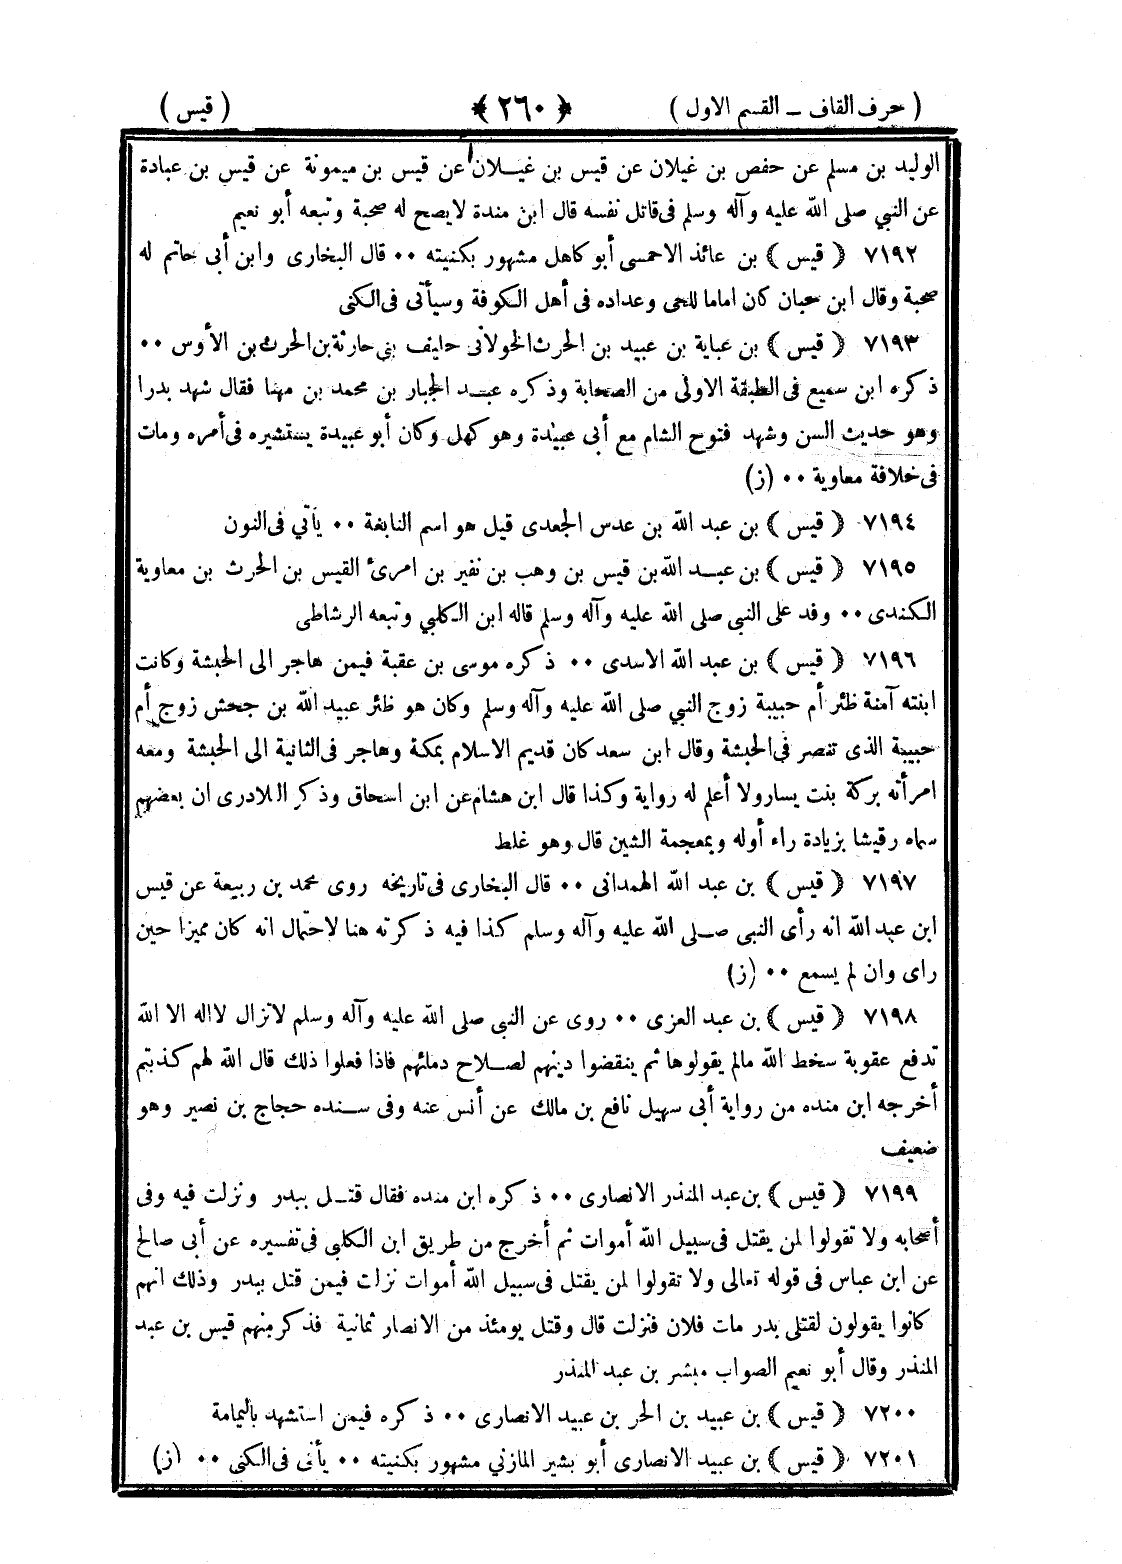 ( حرف القاف ــ القسم الاول ) ﴿ ٢٦٠ ﴾ ( قيس )
الوليد بن مسلم عن حفص بن غيلان عن قيس بن غيـلان عن قيس بن ميمونة عن قيس بن عبادة
عن النبي صلى الله عليه وآله وسلم فى قاتل نفسه قال ابن مندة لا يصح له صحبة وتبعه أبو نعيم
٧١٩٢ ﴿ قيس ﴾ بن عائذ الاحمسى أبو كاهل مشهور بكنيته ٠٠ قال البخارى وابن أبى حاتم له
صحبة وقال ابن حبان كان اماما للحى وعداده فى أهل الكوفة وسيأتى فى الكنى
٧١٩٣ ﴿ قيس ﴾ بن عباية بن عبيد بن الحرث الخولانى حليف بنى حارثة بن الحرث بن الأوس ٠٠
ذكره ابن سميع فى الطبقة الاولى من الصحابة وذكره عبـد الجبار بن محمد بن مهنا فقال شهد بدرا
وهو حديث السن وشهد فتوح الشام مع أبى عبيدة وهو كهل وكان أبو عبيدة يستشيره فى أمره ومات
فى خلافة معاوية ٠٠ (ز)
٧١٩٤ ﴿ قيس ﴾ بن عبد الله بن عدس الجعدى قيل هو اسم النابغة ٠٠ يأتي فى النون
٧١٩٥ ﴿ قيس ﴾ بن عبـد الله بن قيس بن وهب بن نفير بن امرئ القيس بن الحرث بن معاوية
الكندى ٠٠ وفد على النبى صلى الله عليه وآله وسلم قاله ابن الكلبي وتبعه الرشاطى
٧١٩٦ ﴿ قيس ﴾ بن عبد الله الاسدى ٠٠ ذكره موسى بن عقبة فيمن هاجر الى الحبشة وكانت
ابنته آمنة ظئر أم حبيبة زوج النبي صلى الله عليه وآله وسلم وكان هو ظئر عبيد الله بن جحش زوج أم
حبيبة الذى تنصر فى الحبشة وقال ابن سعد كان قديم الاسلام بمكة وهاجر فى الثانية الى الحبشة ومعه
امرأته بركة بنت يسار ولا أعلم له رواية وكذا قال ابن هشام عن ابن اسحاق وذكر البلادرى ان بعضهم
سماه رقيشا بزيادة راء أوله وبمعجمة الشين قال وهو غلط
٧١٩٧ ﴿ قيس ﴾ بن عبد الله الهمدانى ٠٠ قال البخارى فى تاريخه روى محمد بن ربيعة عن قيس
ابن عبد الله انه رأى النبى صـلى الله عليه وآله وسلم كذا فيه ذكرته هنا لاحتمال انه كان مميزا حين
راى وان لم يسمع ٠٠ (ز)
٧١٩٨ ﴿ قيس ﴾ بن عبد العزى ٠٠ روى عن النبي صلى الله عليه وآله وسلم لا تزال لا اله الا الله
تدفع عقوبة سخط الله مالم يقولوها ثم ينقضوا دينهم لصـلاح دمائهم فاذا فعلوا ذلك قال الله لهم كذبتم
أخرجه ابن منده من رواية أبى سهيل نافع بن مالك عن أنس عنه وفى سـنده حجاج بن نصير وهو
ضعيف
٧١٩٩ ﴿ قيس ﴾ بن عبد المنذر الانصارى ٠٠ ذكره ابن منده فقال قتـل ببدر ونزلت فيه وفى
أصحابه ولا تقولوا لمن يقتل فى سبيل الله أموات ثم أخرج من طريق ابن الكلبى فى تفسيره عن أبى صالح
عن ابن عباس فى قوله تعالى ولا تقولوا لمن يقتل فى سبيل الله أموات نزلت فيمن قتل ببدر وذلك انهم
كانوا يقولون لقتلى بدر مات فلان فنزلت قال وقتل يومئذ من الانصار ثمانية فذكر منهم قيس بن عبد
المنذر وقال أبو نعيم الصواب مبشر بن عبد المنذر
٧٢٠٠ ﴿ قيس ﴾ بن عبيد بن الحر بن عبيد الانصارى ٠٠ ذكره فيمن استشهد باليمامة
٧٢٠١ ﴿ قيس ﴾ بن عبيد الانصارى أبو بشير المازني مشهور بكنيته ٠٠ يأتى فى الكنى ٠٠ (ز)